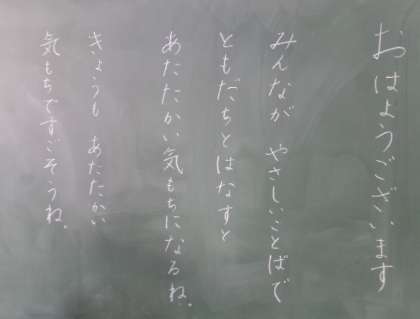 おはようございます
みんなが やさしいことばで
ともだちとはなすと
あたたかい気もちになるね。
きょうも あたたかい
気もちですごそうね。